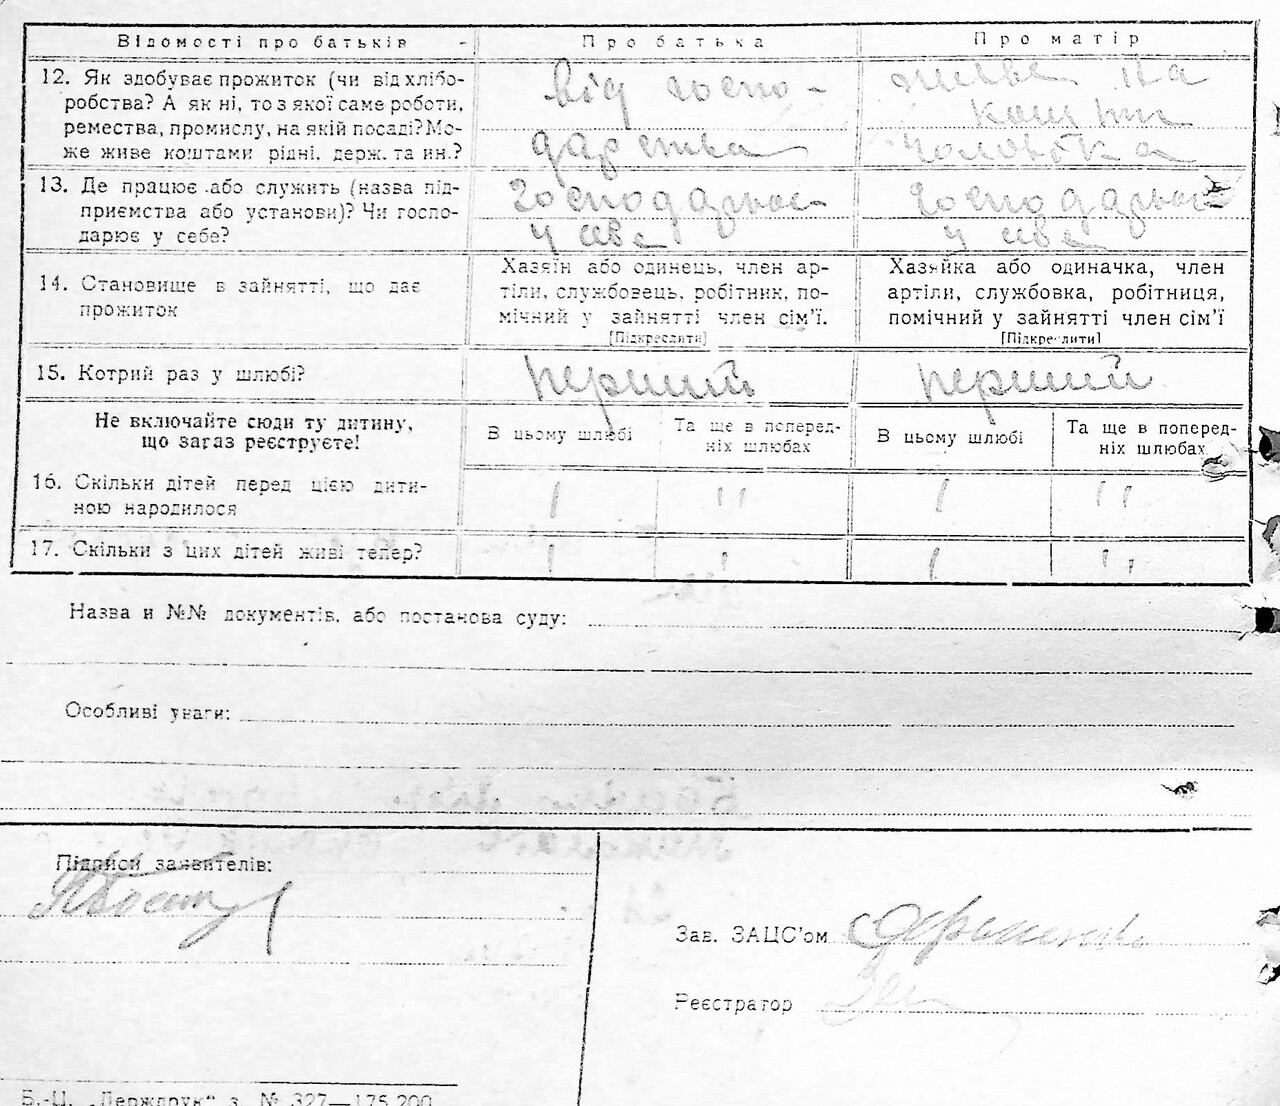 Відомості про батьків Про батька Про матір
12. Як здобуває прожиток (чи від хлібо-
робства? А як ні, то з якої саме роботи,
ремества, промислу, на якій посаді? Мо-
же живе коштами рідні, держ. та ин.?
від госпо-
дарства
живе на
кошти
чоловіка
13. Де працює або служить (назва під-
приємства або установи)? Чи госпо-
дарює у себе?
Господарює
у себе
Господарює
у себе
14. Становище в зайнятті, що дає
прожиток
Хазяїн або одинець, член ар-
тіли, службовець, робітник, по-
мічний у зайнятті член сім'ї.
[Підкреслити]
Хазяйка або одиначка, член
артіли, службовка, робітниця,
помічний у зайнятті член сім'ї
[Підкреслити]
15. Котрий раз у шлюбі?
перший
перший
Не включайте сюди ту дитину,
що зараз реєструєте!
В цьому шлюбі
Та ще в поперед-
ніх шлюбах
В цьому шлюбі
Та ще в поперед-
ніх шлюбах
16. Скільки дітей перед цією дити-
ною народилося
1 " 1 "
17. Скільки з цих дітей живі тепер?
1 " 1 "
Назва и №№ документів, або постанова суду:
Особливі уваги:
Підписи заявителів:
Зав. ЗАЦС'ом
Реєстратор
Б.-Ц. „Держдрук" з. № 327—175.200